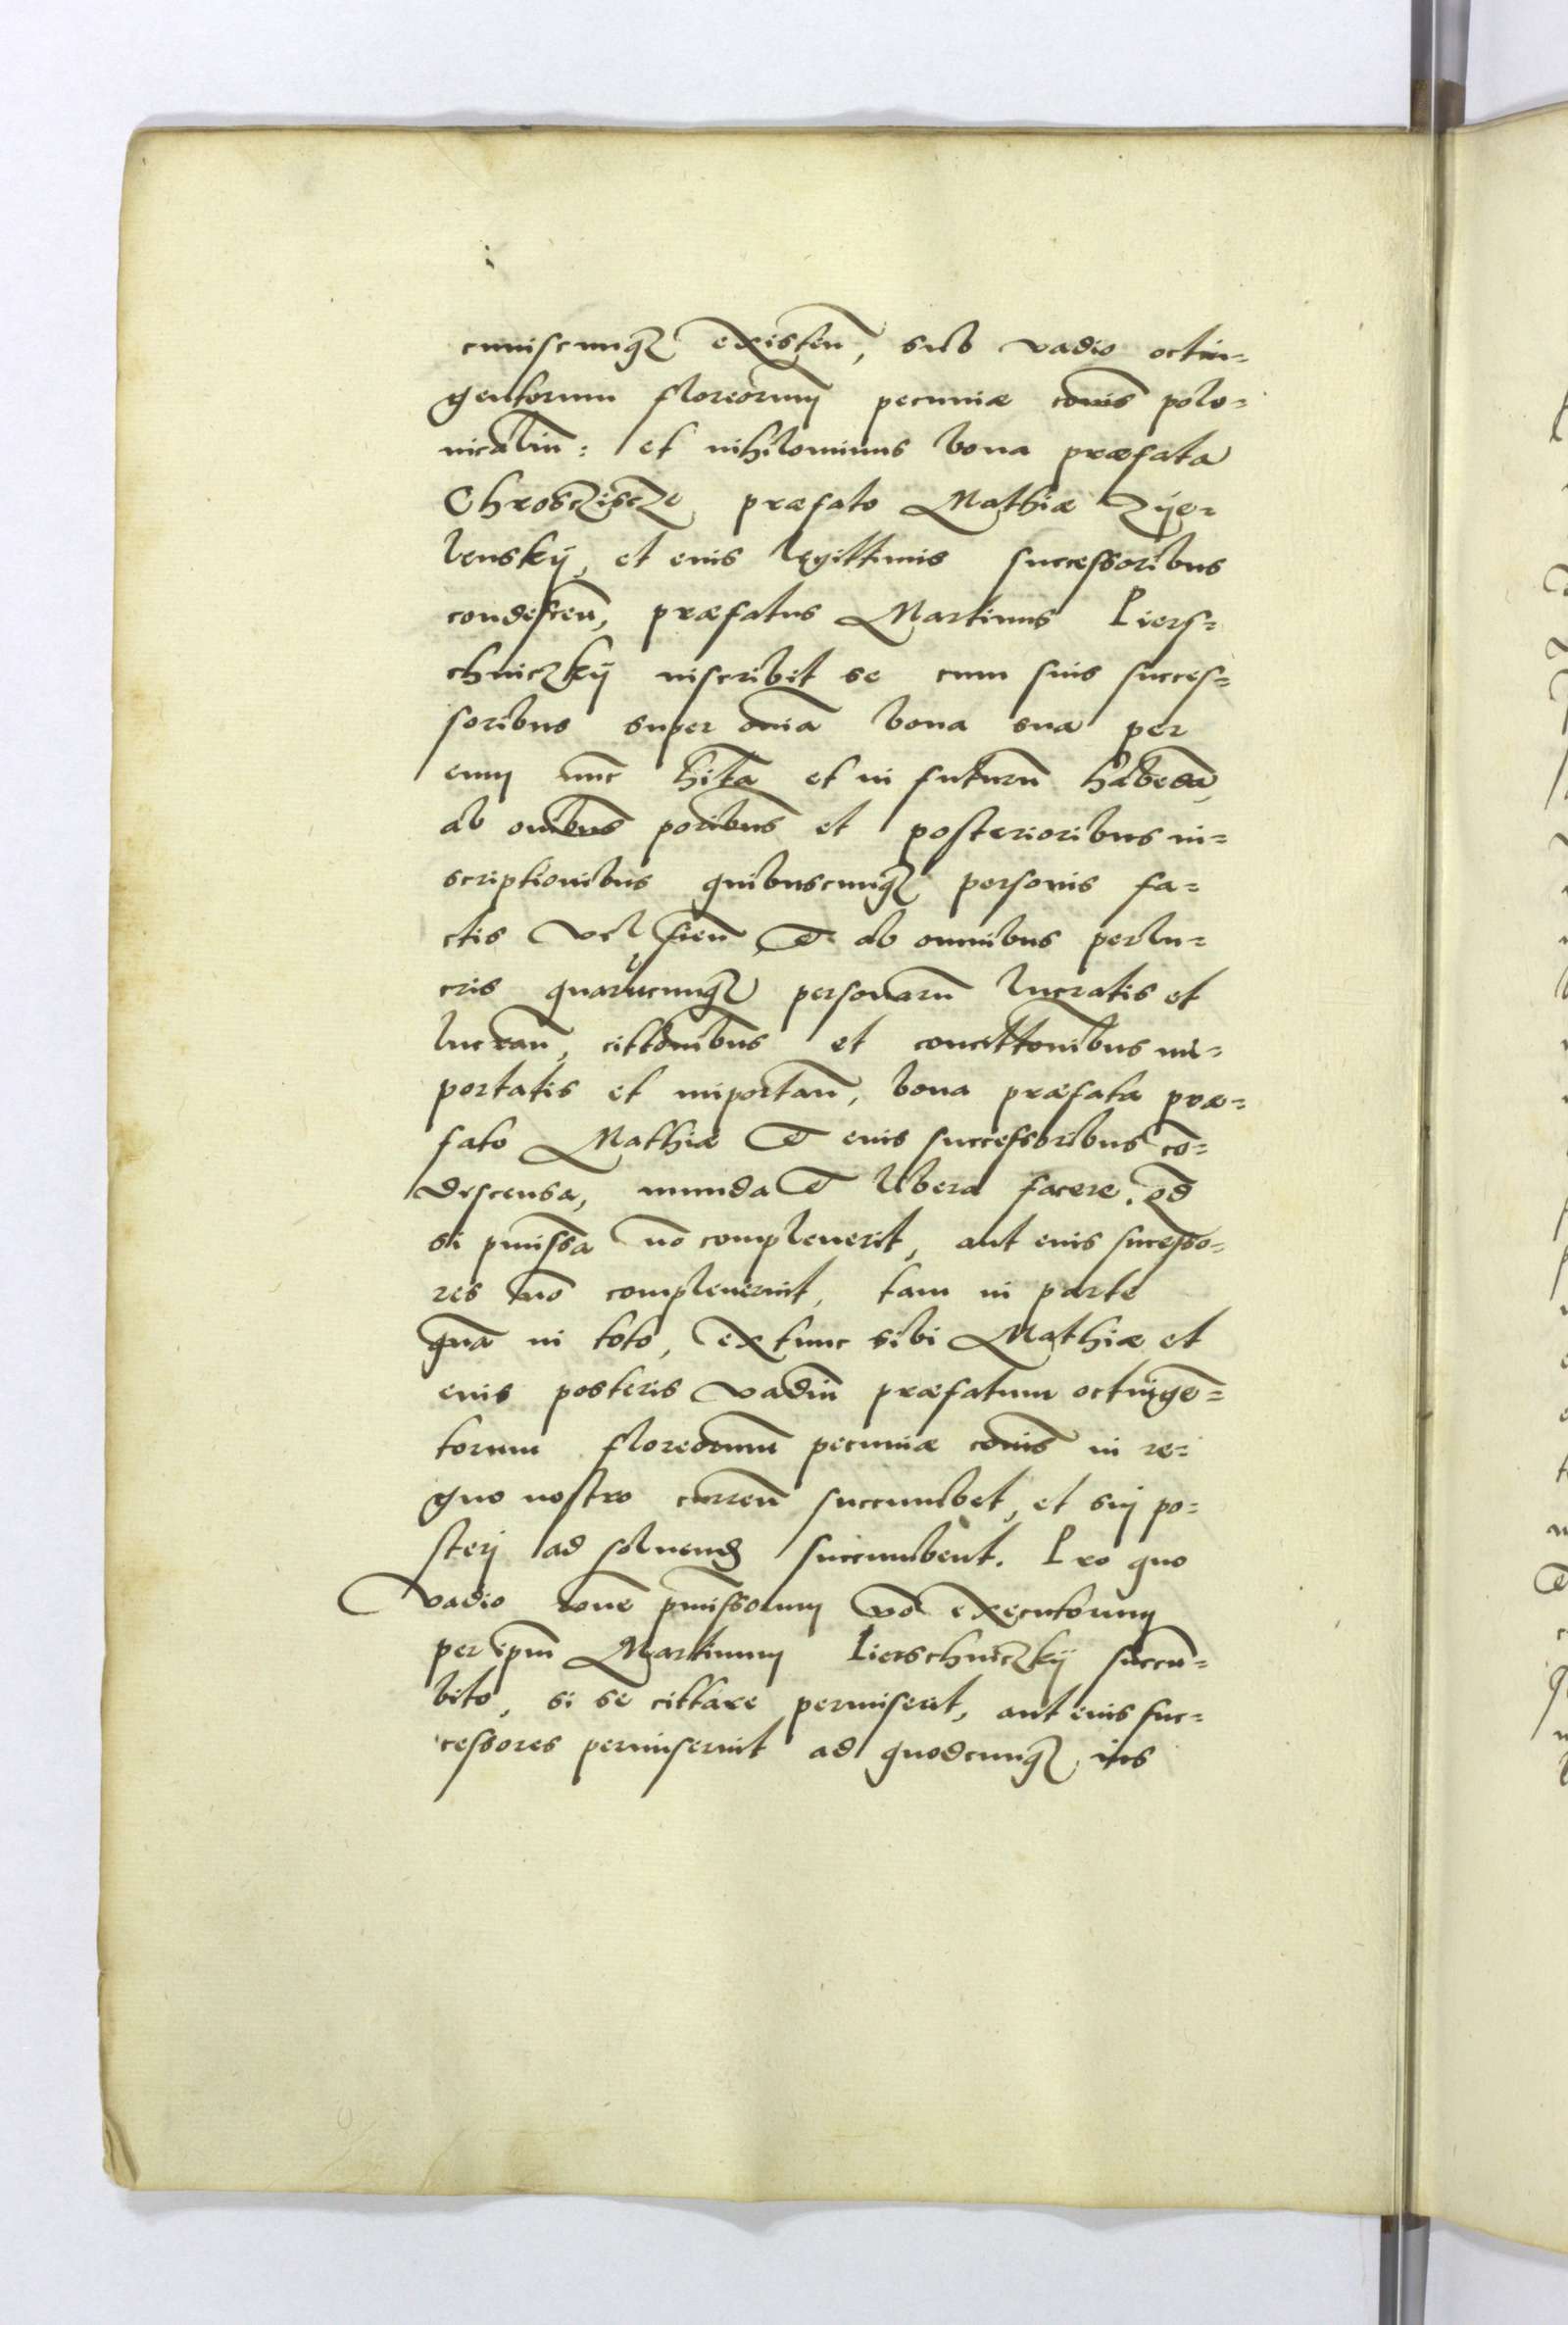 cuiuscunqꝫ existen̄, sub vadio octin=
gentorum floreorum pecuniæ cōnis polo=
nicaliū: et nihilominus bona præfata
Chroscziscze præfato Mathiæ Zÿe=
lenskÿ, et eius legittimis successoribus
condescen̄, præfatus Martinus Piers=
chniczkÿ inscribit se cum suis succes=
soribus super om̄ia bona sua per
eum nūc hīta et in futurū habēda,
ab om̄ibus pōribus et posterioribus in=
scriptionibus quibuscunqꝫ personis fa=
ctis vel fien̄, et ab omnibus perlu=
cris quarūcunqꝫ personarū lucratis et
lucran̄, cittōnibus et concittōnibus im=
portatis et importan̄, bona præfata præ=
fato Mathiæ et eius successoribus cō=
descensa, munda et libera facere. Qd̄
si p̄missa nō compleuerit, aut eius sucesso=
res nō compleuerint, tam in parte
quā in toto, extunc sibi Mathiæ et
eius posteris vadiū præfatum octingē=
torum floreorum pecuniæ cōnis in re=
gno nostro curren̄ succumbet, et sui po=
sterj ad soluend succumbent. Pro quo
vadio rōne p̄missorum nō executorum
per ip̄m Martinum Pierschniczkÿ succū=
bito, si se cittare permiserit, aut eius suc=
cessores permiserint ad quodcunqꝫ ius